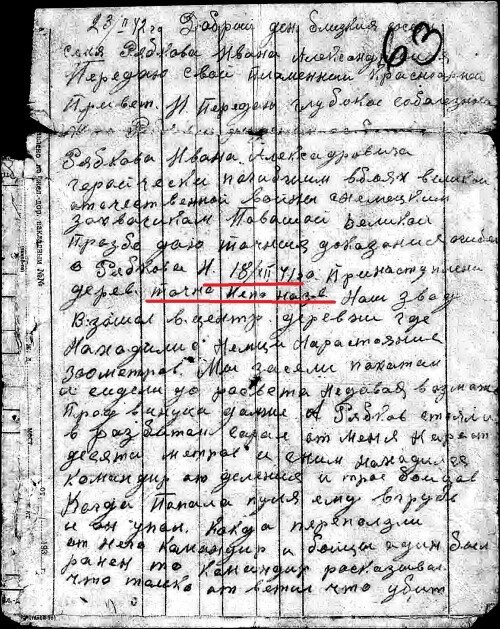 23 II 42 год Добрый ден близкия
63
семя Рябкова Ивана Александровича
Передаю свой пламенный красноармей
Привет. И Передаю глубокое соболезнова
Рябкова Ивана Алексадровича
геройчески погибшим вбоях великой
отечественной войны снемецким
захвачикам Повашой великой
Прозбе даю точния доказания
о Рябкова И. 18/XII 41 го. Принаступлени
дерев. точно непо назв Наш звод
Взошол вцентр деревни где
Находились Немци Нарастояние
300метров. Мы засели похатам
и сидели до расвета недавая возмож
Продвинуца далше А Рябков стоял
в разбитом сарае от меня
десяти метров и сним находился
командир отделения и трое бойцов
Когда Попала пуля ему вгрудь
и он упал. Когда переползли
от него командир и бойцы один был
ранен то командир расказывал
что толко ответил что убит